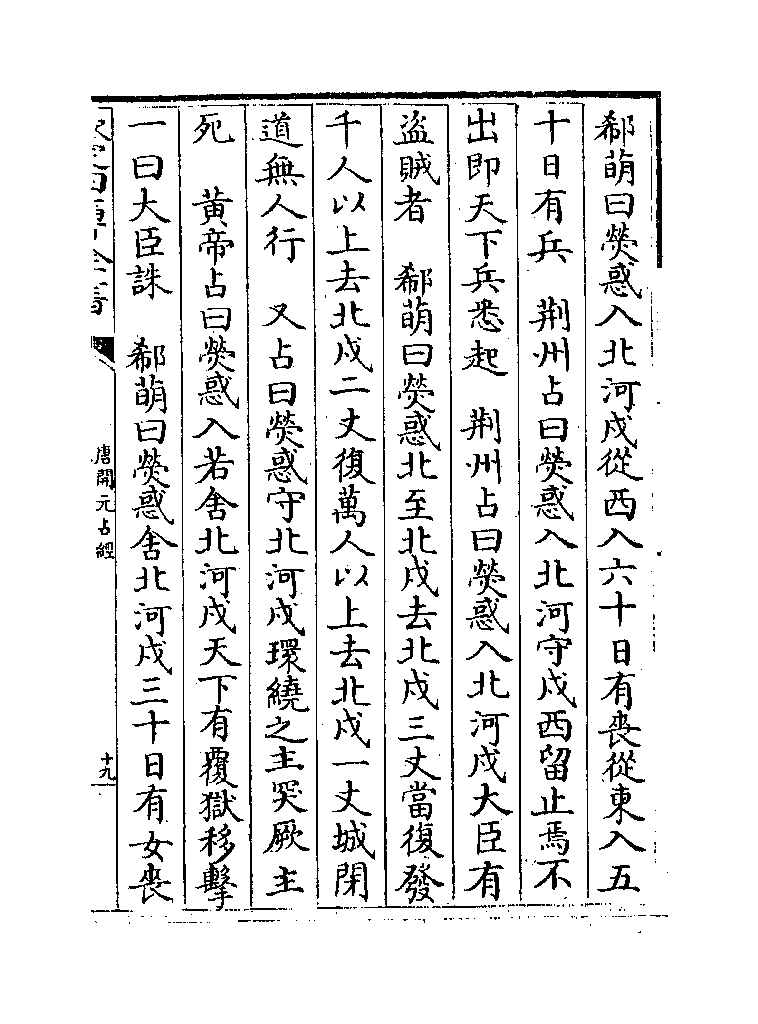 郗萌曰熒惑入北河戍從西入六十日有喪從東入五
十日有兵　荆州占曰熒惑入北河守戍西留止焉不
出即天下兵悉起　荆州占曰熒惑入北河戍大臣有
盜賊者　郗萌曰熒惑北至北戍去北戍三丈當復發
千人以上去北戍二丈復萬人以上去北戍一丈城閉
道無人行　又占曰熒惑守北河戍環繞之主突厥主
死　黄帝占曰熒惑入若舍北河戍天下有覆獄移擊
一曰大臣誅　郗萌曰熒惑舍北河戍三十日有女喪
欽定四庫全書
唐開元占經
十九